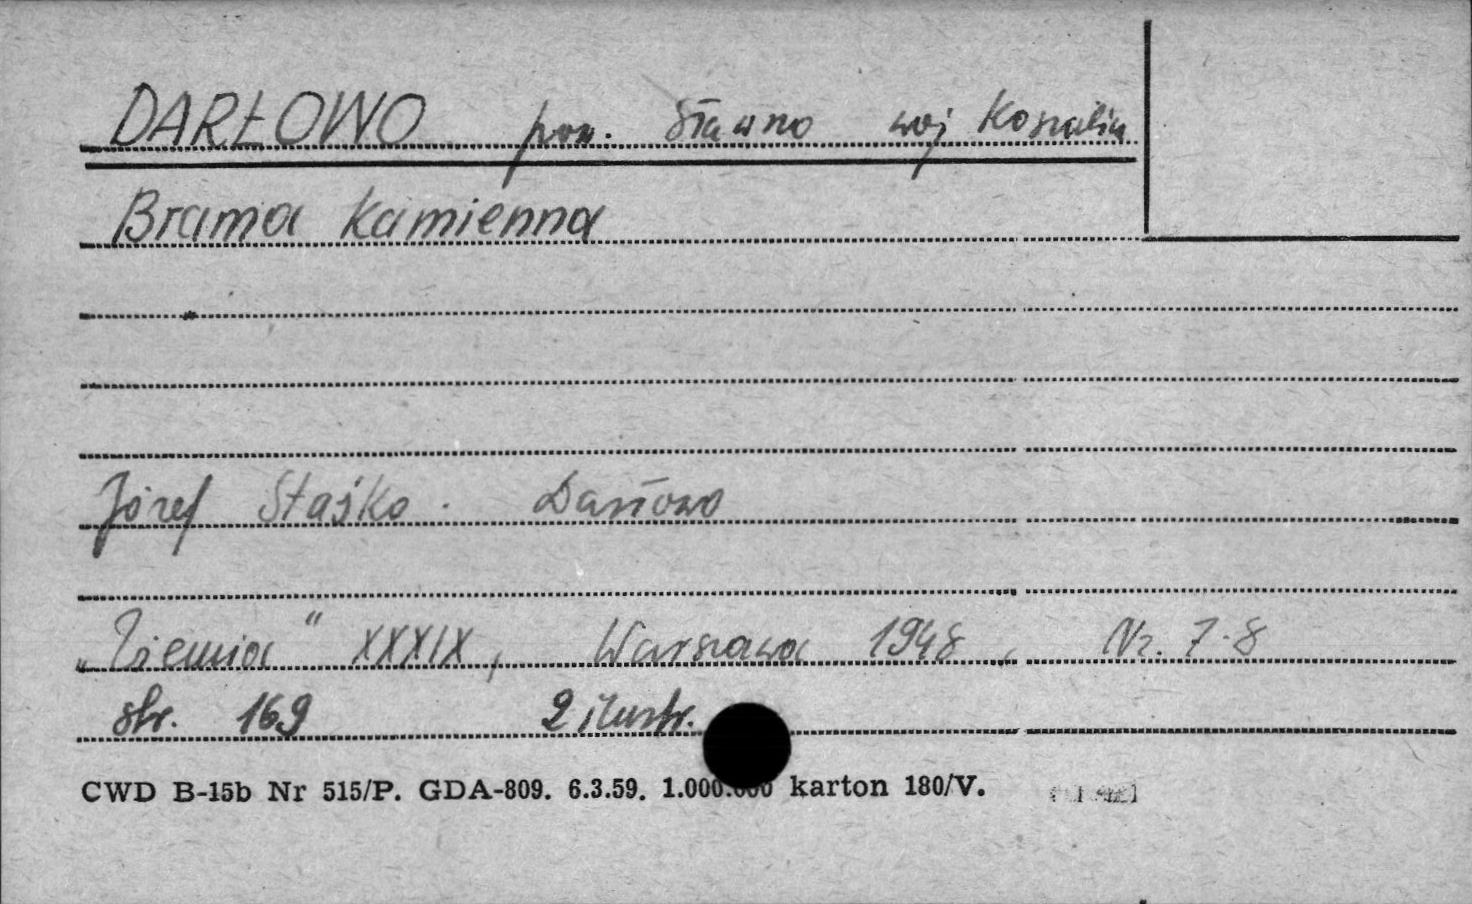 DARŁOWO pow. Sławno woj Koszalin
Brama Kamienna
Józef Staśko. Darłowo
„Ziemia" XXXIX, Warszawa 1948, Nr. 7-8
str. 169 2 ilustr.
CWD B-15b Nr 515/P. GDA-809. 6.3.59. 1.000.000 karton 180/V.